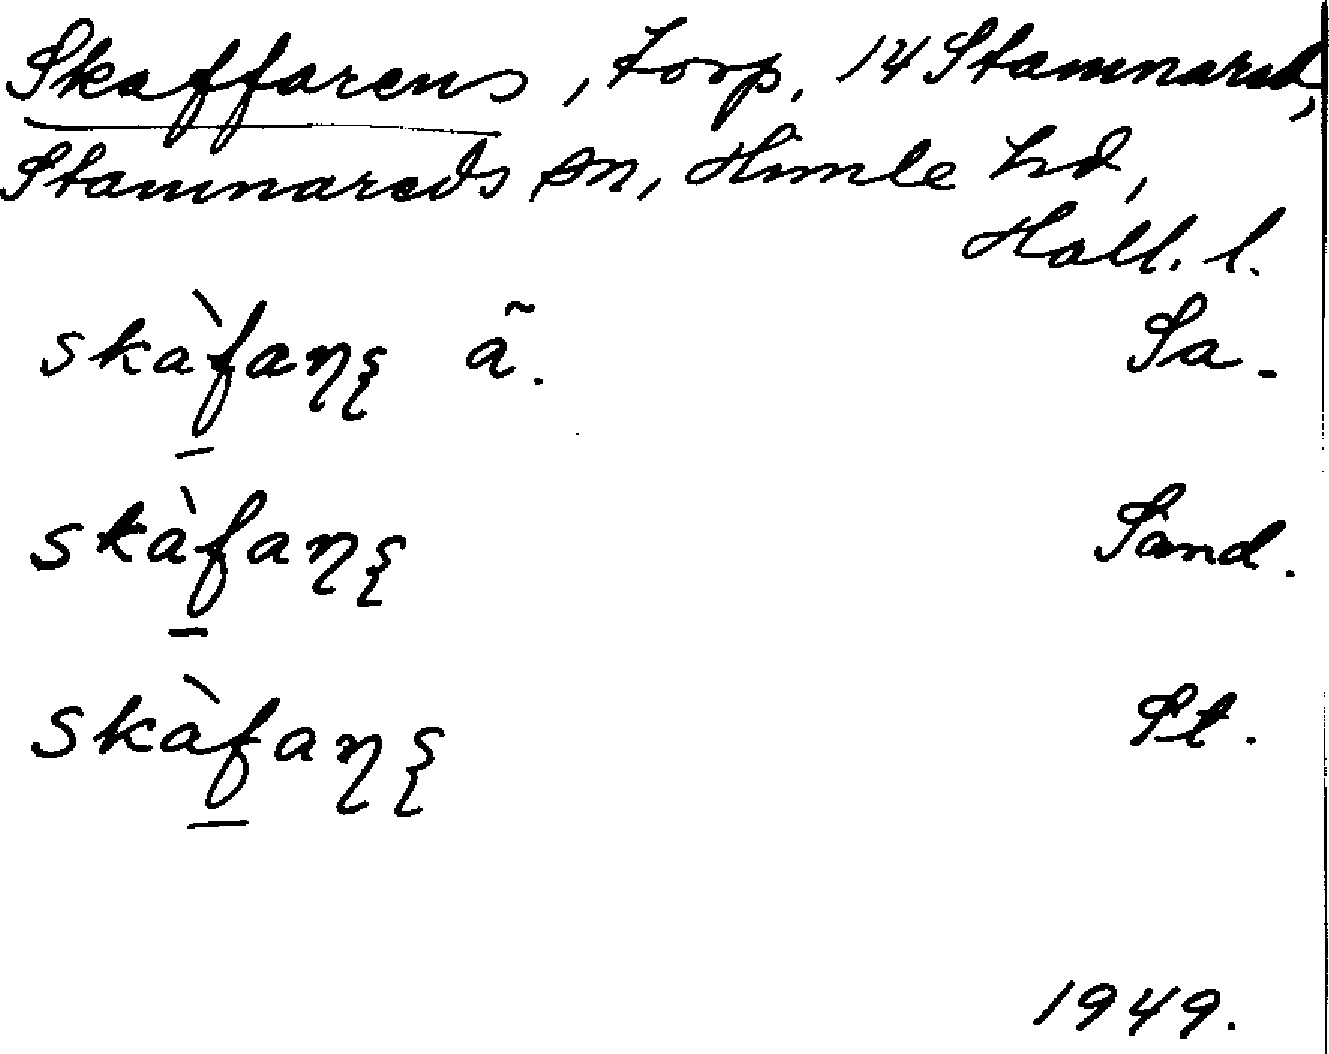 Skaffarens, torp, 14 Stamnared,
Stamnareds sn, Himle hd,
Hall. l.
skàfaŋȿ ã. Sa.
skàfaŋȿ Sand.
skàfaŋȿ St.
1949.